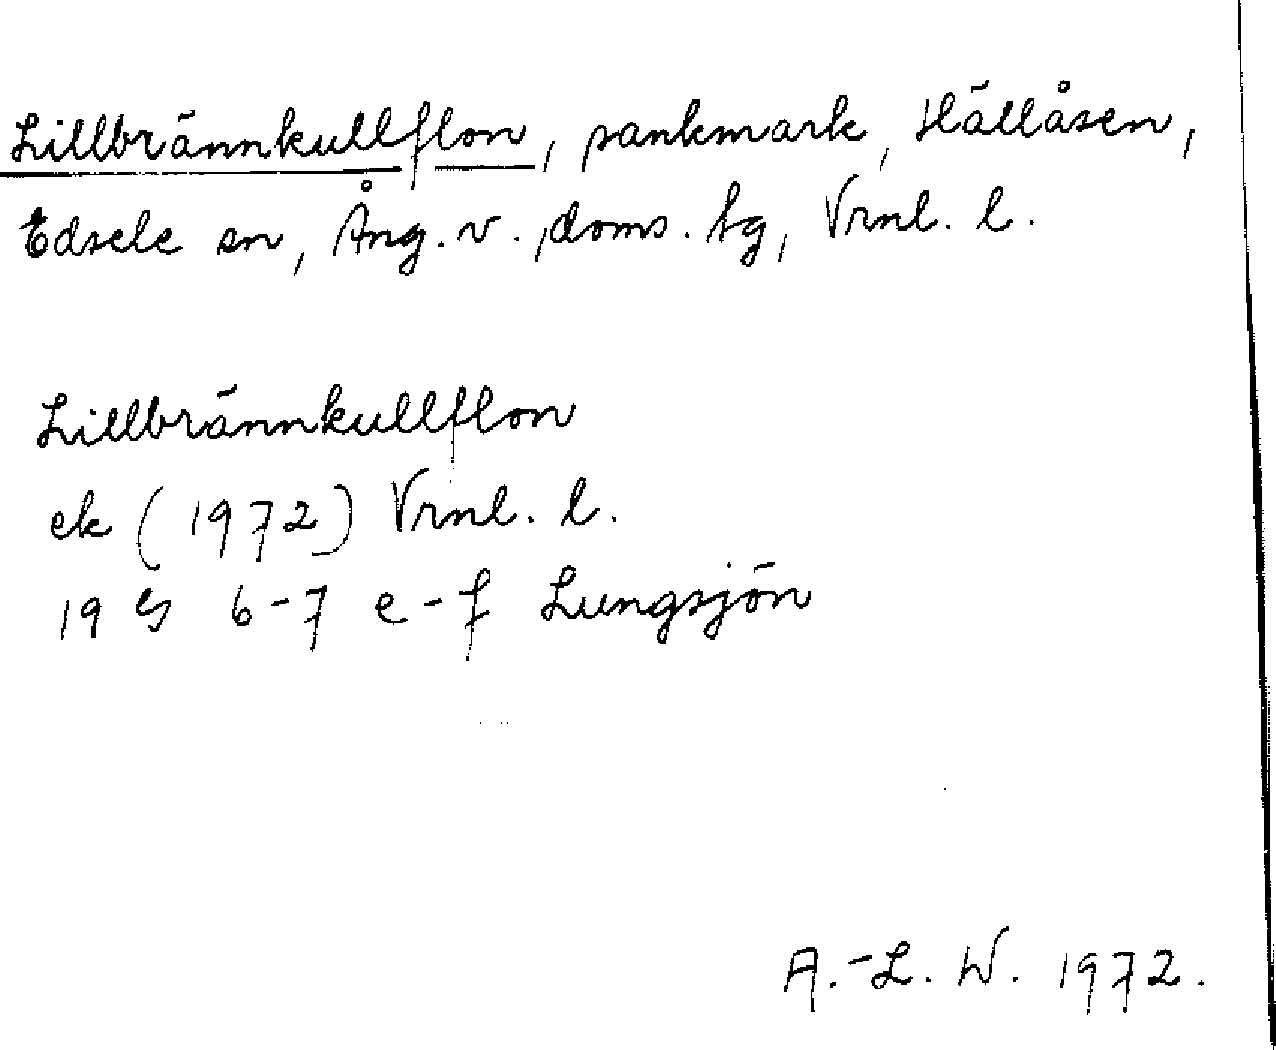 Lillbrännkullflon, sankmark, Hällåsen,
Edsele sn, Ång. v., doms. sg, Vrnl. l.
Lillbrännkullflon
ek (1972) Vrnl. l.
19 G 6-7 e-f Lungsjön
A.-L. W. 1972.